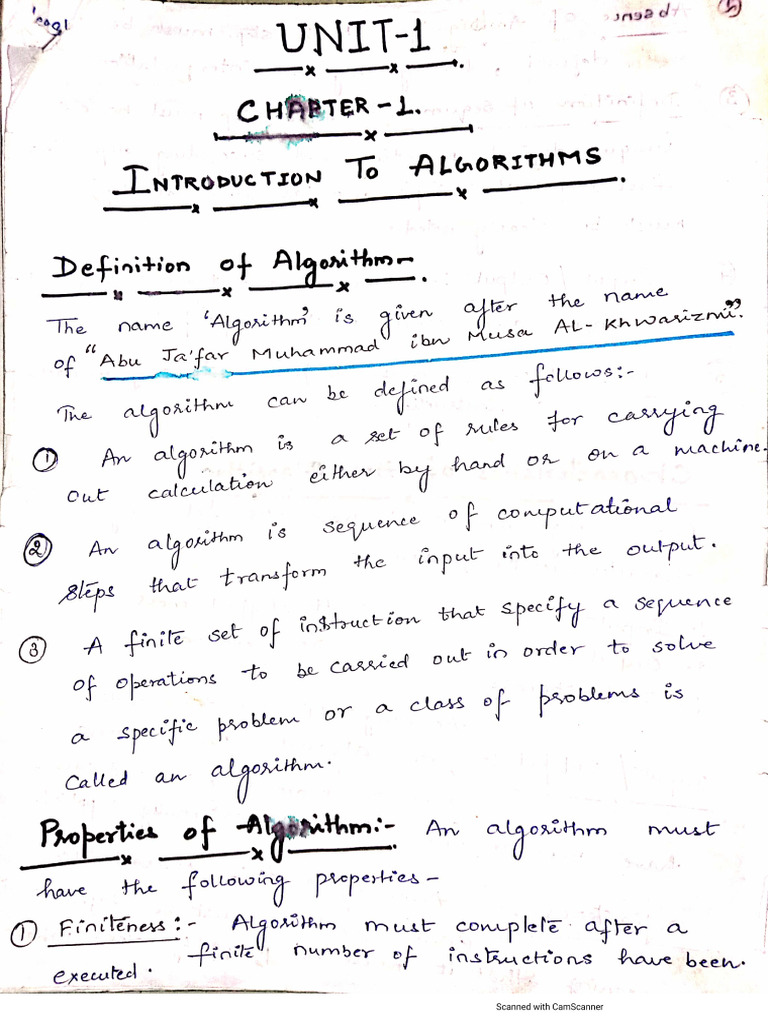 UNIT-1
CHAPTER-1.
INTRODUCTION TO ALGORITHMS
Definition of Algorithm-
The name 'Algorithm' is given after the name
of "Abu Ja'far Muhammad ibn Musa AL-Khwarizmi".
The algorithm can be defined as follows:-
① An algorithm is a set of rules for carrying
out calculation either by hand or on a machine.
② An algorithm is sequence of computational
steps that transform the input into the output.
③ A finite set of instruction that specify a sequence
of operations to be carried out in order to solve
a specific problem or a class of problems is
called an algorithm.
Properties of Algorithm:- An algorithm must
have the following properties-
① Finiteness:- Algorithm must complete after a
finite number of instructions have been
executed.
Scanned with CamScanner